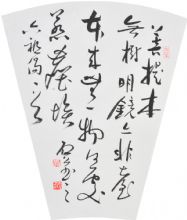 菩提本
無樹明鏡亦非臺
本来無一物何處
惹塵埃
六祖偈